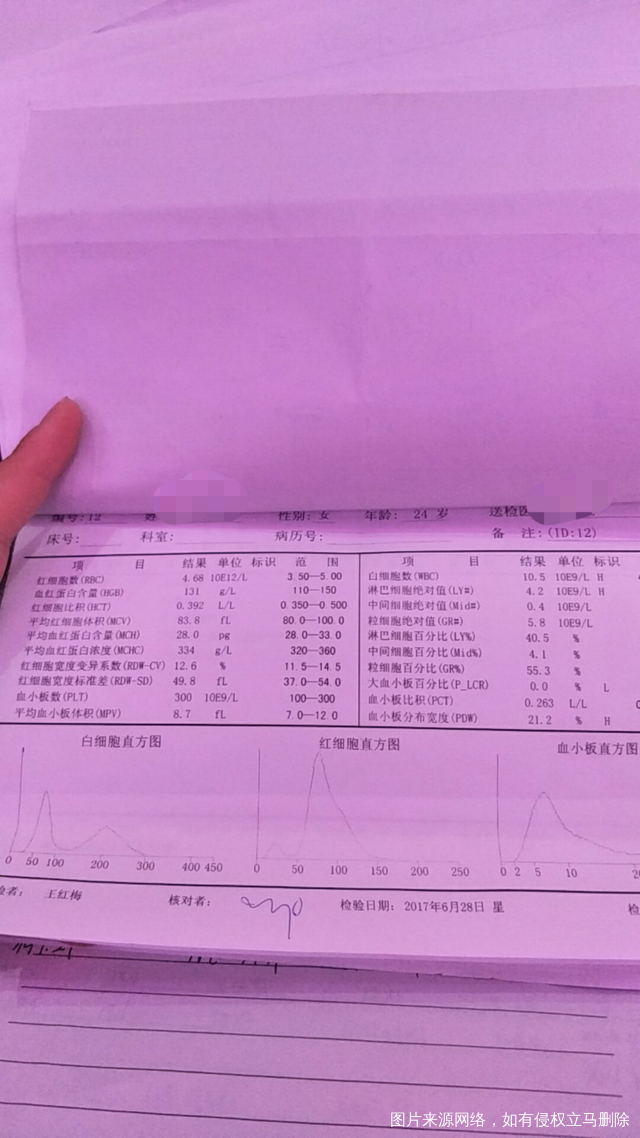 编号:12 姓 性别: 女 年龄: 24 岁 送检医
床号: 科室: 病历号: 备 注: (ID:12)
项 目 结果 单位 标识 范 围 项 目 结果 单位 标识
红细胞数(RBC) 4.68 10E12/L 3.50—5.00 白细胞数(WBC) 10.5 10E9/L H
血红蛋白含量(HGB) 131 g/L 110—150 淋巴细胞绝对值(LY#) 4.2 10E9/L H
红细胞比积(HCT) 0.392 L/L 0.350—0.500 中间细胞绝对值(Mid#) 0.4 10E9/L
平均红细胞体积(MCV) 83.8 fL 80.0—100.0 粒细胞绝对值(GR#) 5.8 10E9/L
平均血红蛋白含量(MCH) 28.0 pg 28.0—33.0 淋巴细胞百分比(LY%) 40.5 %
平均血红蛋白浓度(MCHC) 334 g/L 320—360 中间细胞百分比(Mid%) 4.1 %
红细胞宽度变异系数(RDW-CV) 12.6 % 11.5—14.5 粒细胞百分比(GR%) 55.3 %
红细胞宽度标准差(RDW-SD) 49.8 fL 37.0—54.0 大血小板百分比(P_LCR) 0.0 % L
血小板数(PLT) 300 10E9/L 100—300 血小板比积(PCT) 0.263 L/L
平均血小板体积(MPV) 8.7 fL 7.0—12.0 血小板分布宽度(PDW) 21.2 % H
白细胞直方图 红细胞直方图 血小板直方图
0 50 100 200 300 400 450 0 50 100 150 200 250 0 2 5 10 20
检者: 王红梅 核对者: 检验日期: 2017年6月28日 星
图片来源网络，如有侵权立马删除